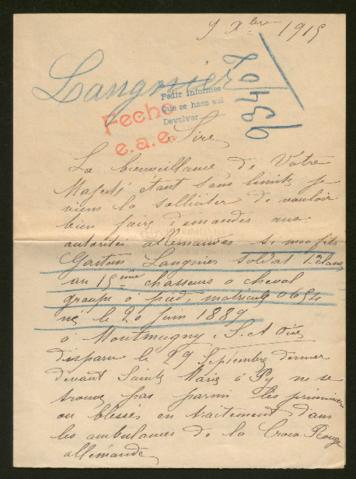 9 Xbre 1915
Langnier
93408
Pedir informes
Que se hace así
Devolver
Fecha
e.a.e.
Sire,
La bienveillance de Votre
Majesté étant sans limite, je
viens la solliciter de vouloir
bien faire demander aux
autorités allemandes si mon fils
Gaston Langnier soldat 2e classe
au 15ème chasseurs à cheval
groupe à pied, matricule
né le 20 Juin 1889
à Montmagny, S. et Oise
disparu le 29 Septembre dernier
devant Sainte Marie à Py ne se
trouve pas parmi les prisonniers
ou blessés en traitement dans
les ambulances de la Croix Rouge
allemande.